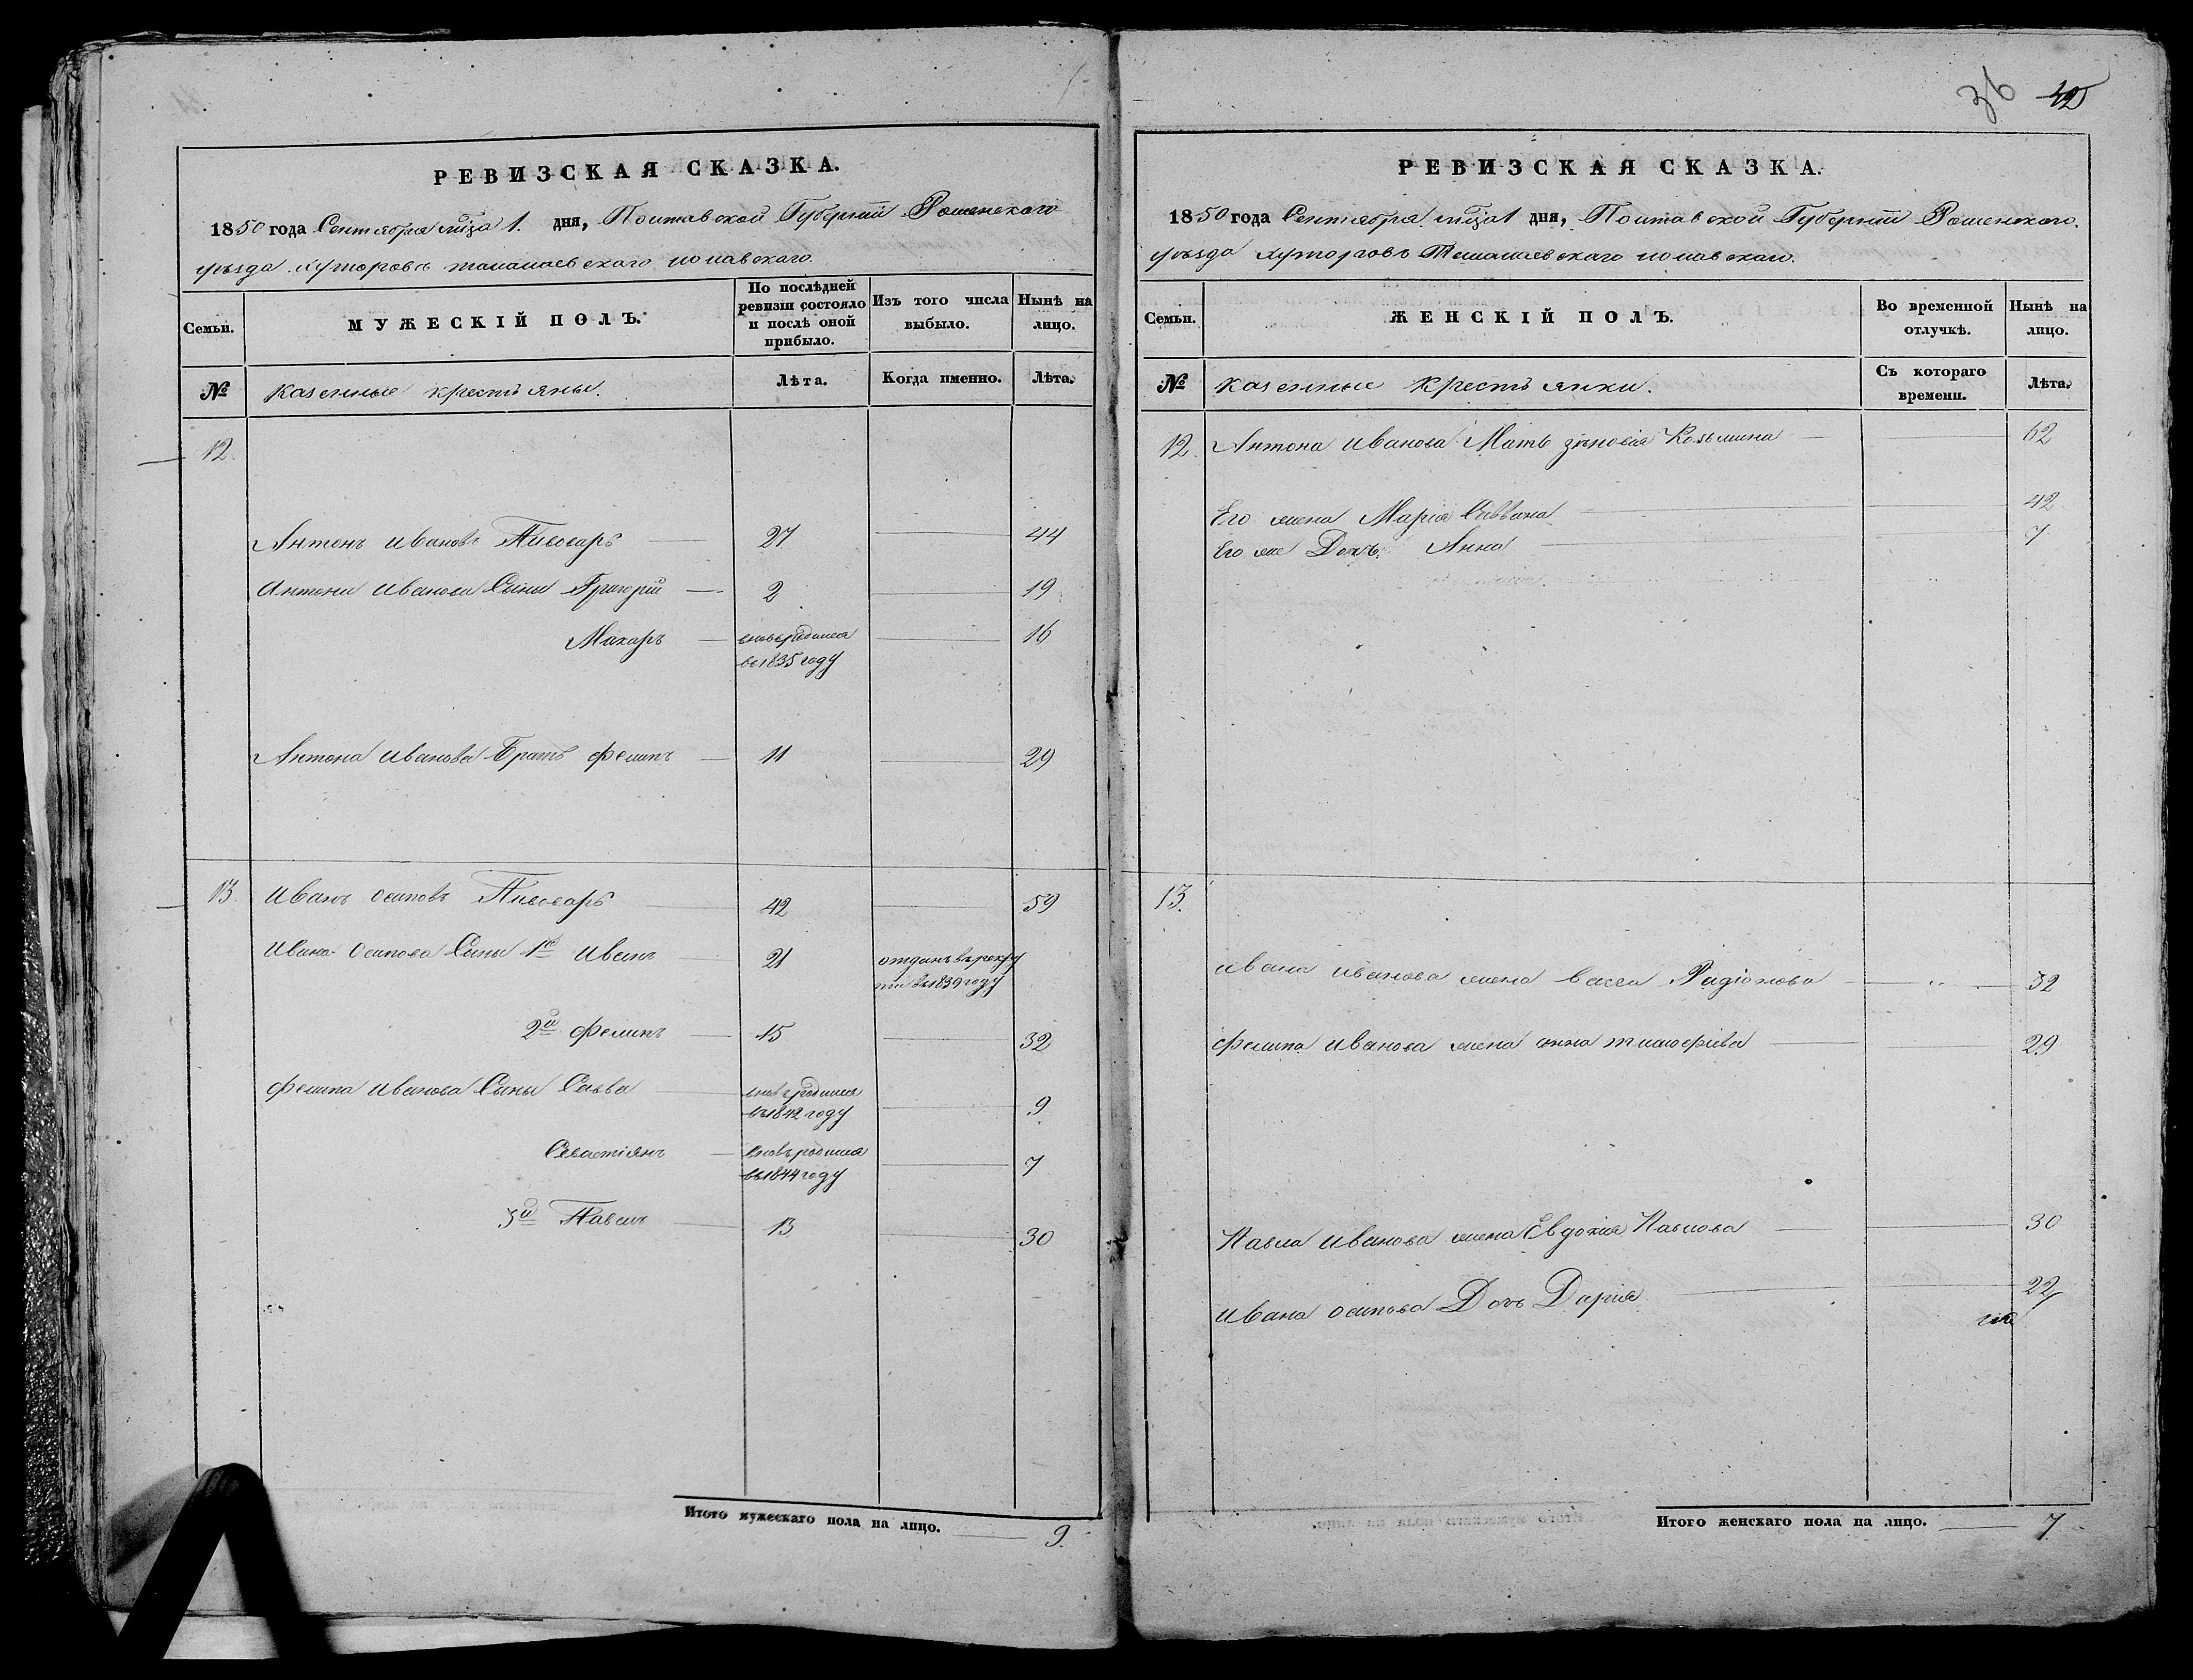 36 42
РЕВИЗСКАЯ СКАЗКА.
1850 года Сентября мѣца 1. дня, Полтавской Губерніи Роменскаго
уѣзда хуторовъ
Семьи.
МУЖЕСКІЙ ПОЛЪ.
По послѣдней ревизіи состояло и послѣ оной прибыло.
Изъ того числа выбыло.
Нынѣ на лицо.
№
Казенные крестьяны.
Лѣта.
Когда именно.
Лѣта.
12.
Антонъ Ивановъ Пивоваръ 27 44
Антона Иванова Сыны Григорій 2 19
Макаръ вновь родился 16
въ 1835 году
Антона Иванова Братъ Филипъ 11 29
13. Иванъ Осиповъ Пивоваръ 42 59
Ивана Осипова Сыны 1й Иванъ 21 отданъ въ рекру
ты въ 1839 году
2й Филипъ 15 32
Филипа Иванова Сыны Савва вновь родился 9
въ 1842 году
Севастіянъ вновь родился 7
въ 1844 году
3й Павелъ 13 30
Итого мужескаго пола на лицо. 9.
РЕВИЗСКАЯ СКАЗКА.
1850 года Сентября мѣца 1 дня, Полтавской Губерніи Роменскаго
уѣзда хуторовъ
Семьи.
ЖЕНСКІЙ ПОЛЪ.
Во временной отлучкѣ.
Нынѣ на лицо.
№
Казенные Крестьянки.
Съ котораго времени.
Лѣта.
12. Антона Иванова Мать Зѣновія Козьмина 62
Его жена Марія Саввина 42
Его же Дочь Анна 7
13.
Ивана Иванова жена Васса Радіонова 32
Филипа Иванова жена Анна Тимофіева 29
Павла Иванова жена Евдокія Павлова 30
Ивана Осипова Дочь Дарія 22
Итого женскаго пола на лицо. 7.